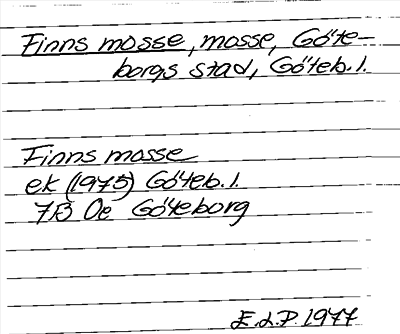 Finns mosse, mosse, Göte-
borgs stad, Göteb. l.
Finns mosse
ek (1975) Göteb. l.
7B Oe Göteborg
E.L.P. 1977